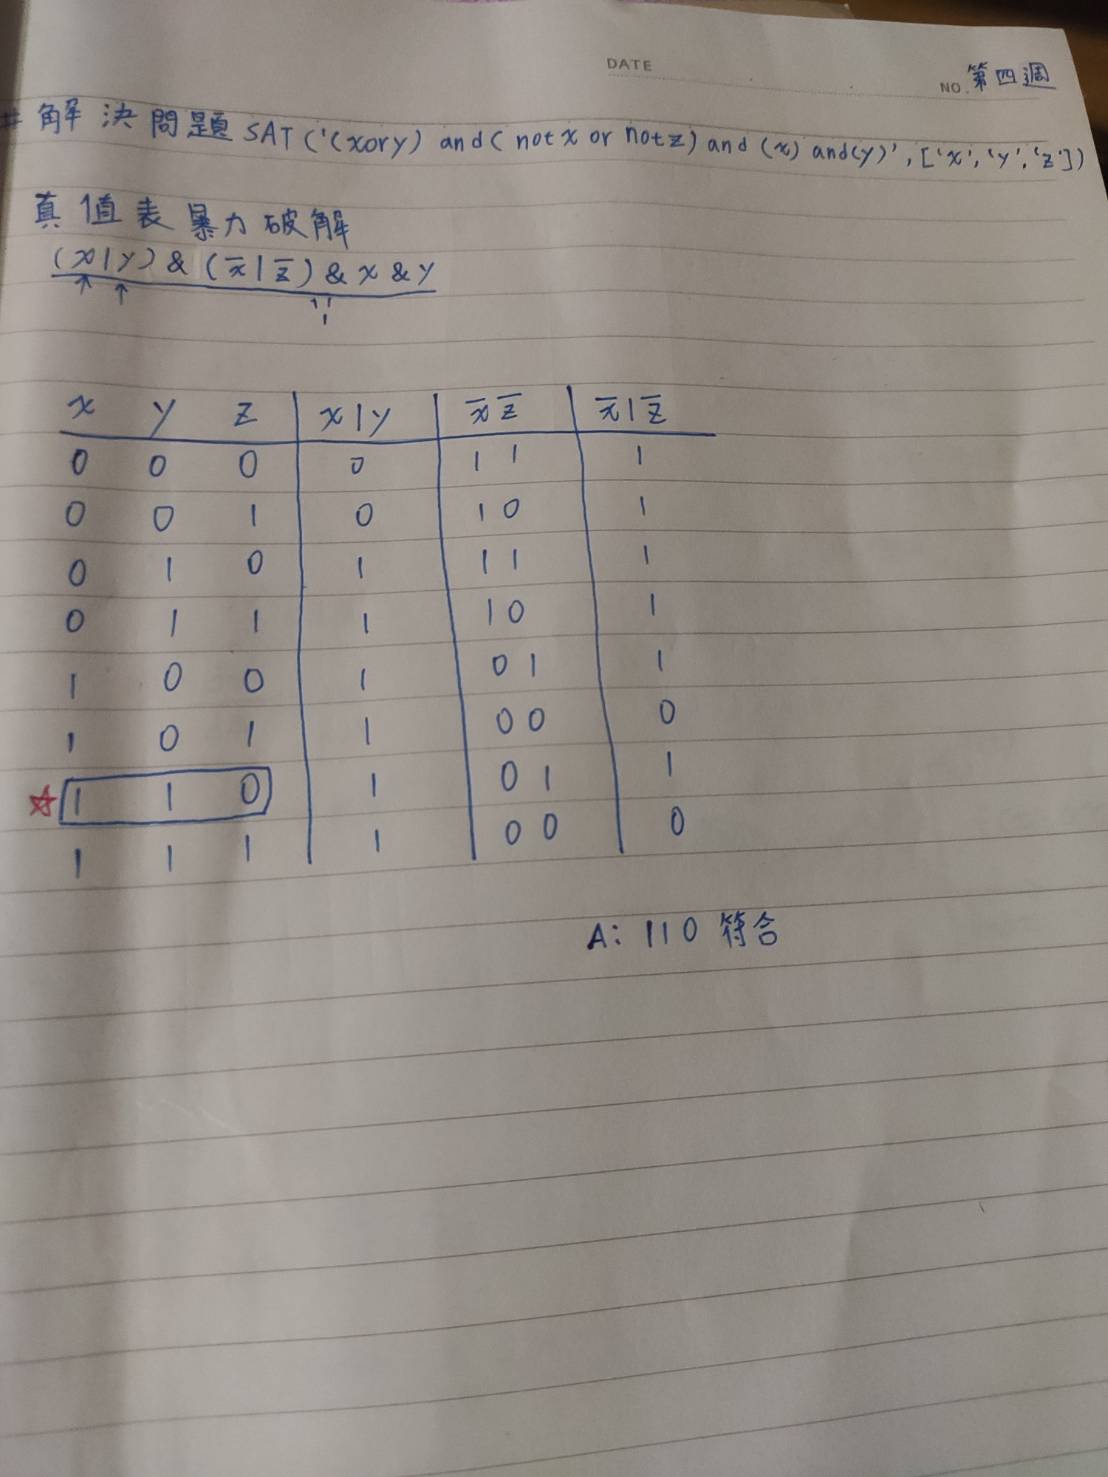 DATE
NO. 第四週
# 解決問題 SAT('(x or y) and ( not x or not z) and (x) and (y)', ['x', 'y', 'z'])
真值表暴力破解
(x|y) & (x̅|z̅) & x & y
↑ ↑
x y z x|y x̅ z̅ x̅|z̅
0 0 0 0 1 1 1
0 0 1 0 1 0 1
0 1 0 1 1 1 1
0 1 1 1 1 0 1
1 0 0 1 0 1 1
1 0 1 1 0 0 0
☆ 1 1 0 1 0 1 1
1 1 1 1 0 0 0
A: 110 符合